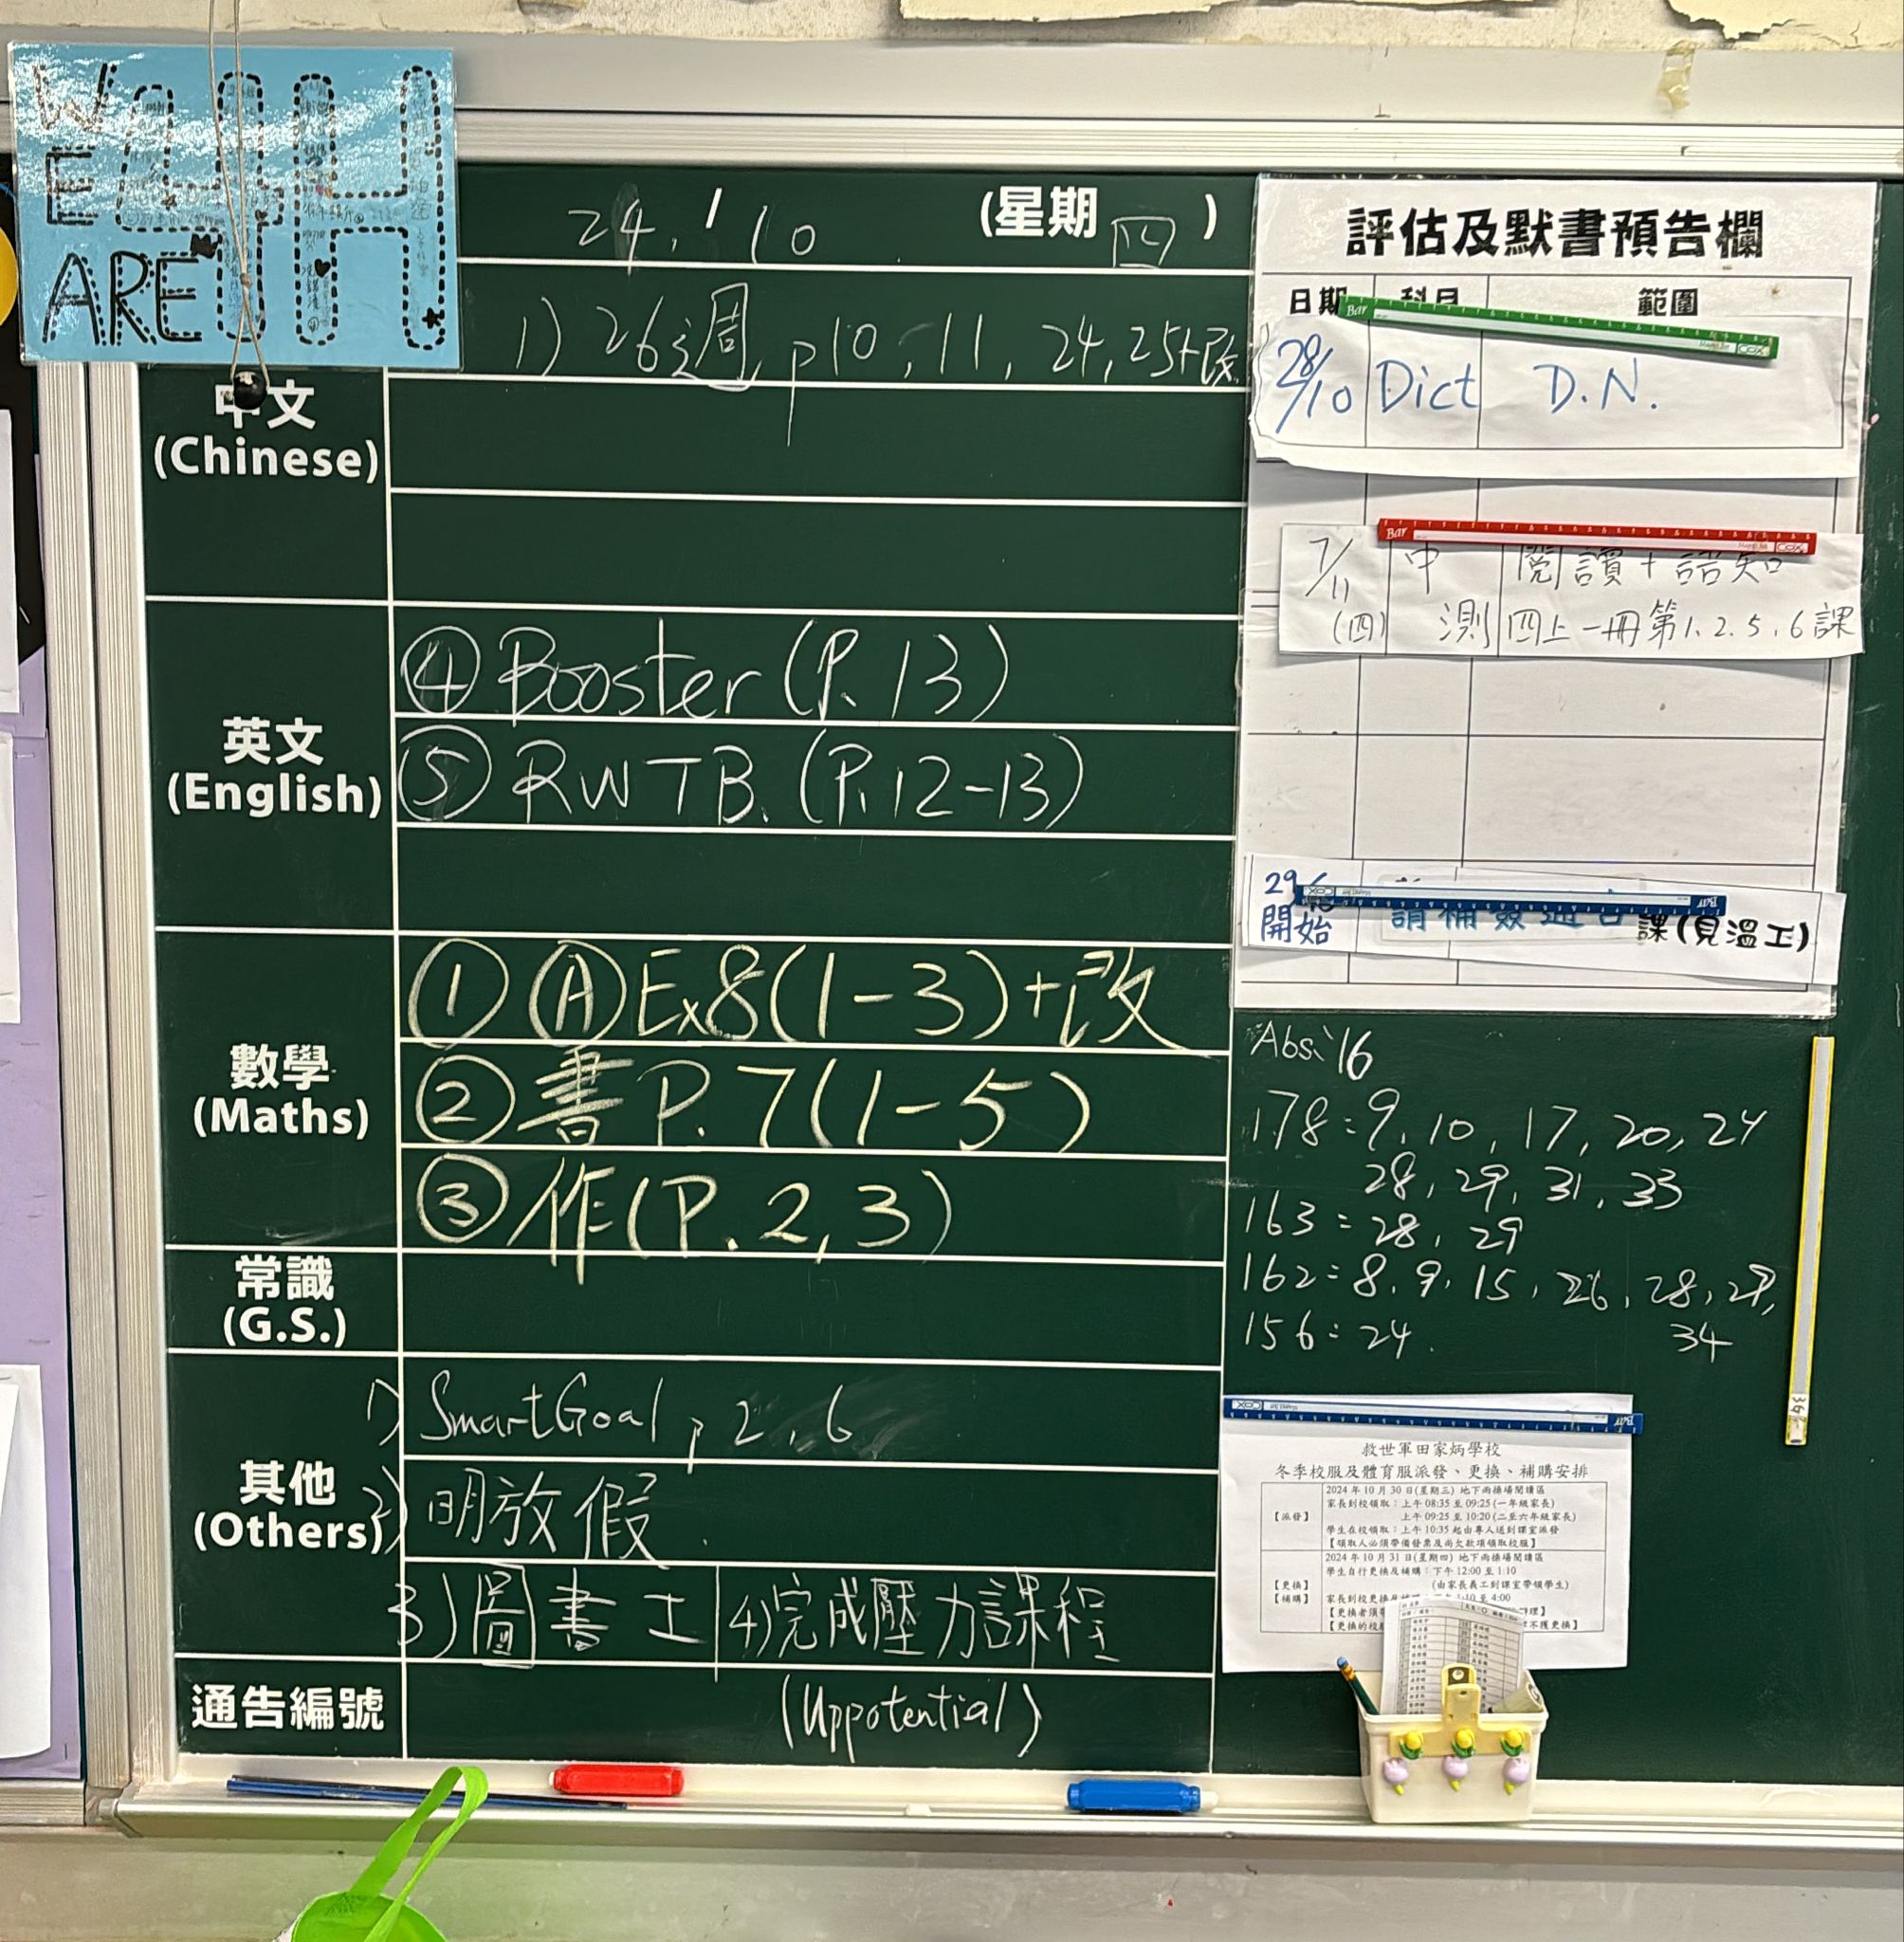 WE ARE 4H
24 / 10 (星期 四)
1) 26週 p10, 11, 24, 25+改
中文
(Chinese)
英文
(English)
④ Booster (P. 13)
⑤ RWTB. (P. 12-13)
數學
(Maths)
① Ⓐ Ex8(1-3)+改
② 書 P. 7(1-5)
③ 作(P. 2, 3)
常識
(G.S.)
其他
(Others)
1) SmartGoal p 2, 6
2) 明放假.
3) 圖書 士 4) 完成壓力課程
(Uppotential)
通告編號
評估及默書預告欄
日期 科目 範圍
28/10 Dict D.N.
7/11 中 閱讀+語知
(四) 測 四上一冊第1. 2. 5. 6課
29
開始 請補簽通告 課(見溫工)
Abs: 16
178: 9, 10, 17, 20, 24
28, 29, 31, 33
163: 28, 29
162: 8, 9, 15, 26, 28, 29,
34
156: 24.
救世軍田家炳學校
冬季校服及體育服派發、更換、補購安排
【派發】
2024 年 10 月 30 日(星期三) 地下雨操場閱讀區
家長到校領取：上午 08:35 至 09:25 (一年級家長)
上午 09:25 至 10:20 (二至六年級家長)
學生在校領取：上午 10:35 起由專人送到課室派發
【領取人必須帶備發票及尚欠款項領取校服】
【更換】
【補購】
2024 年 10 月 31 日(星期四) 地下雨操場閱讀區
學生自行更換及補購：下午 12:00 至 1:10
(由家長義工到課室帶領學生)
家長到校更換 1:10 至 4:00
【更換者須
【更換的校 不獲更換】